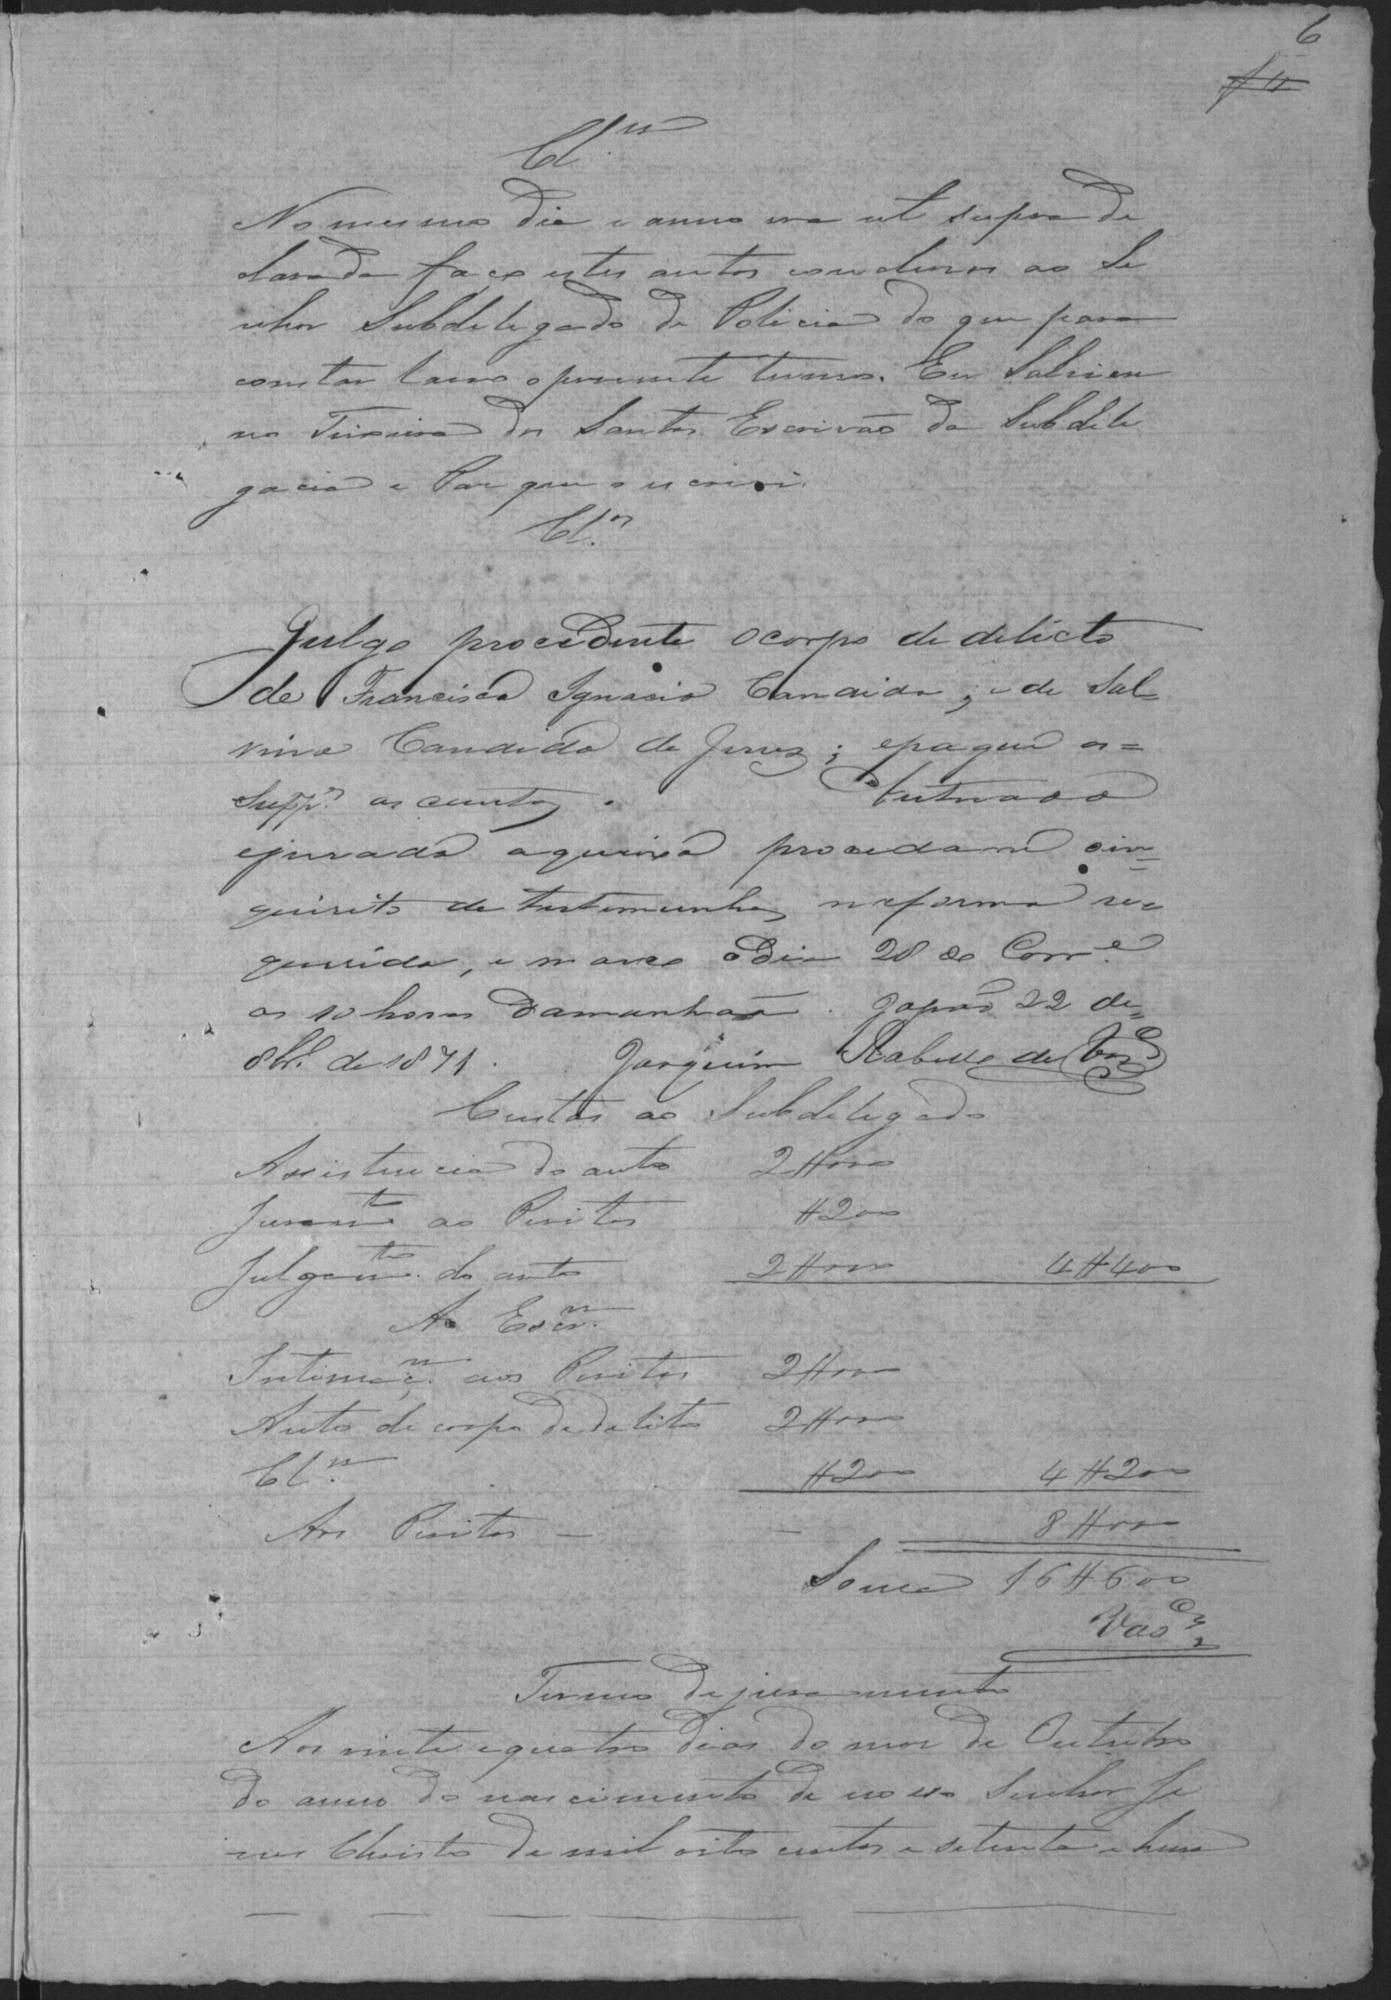 6
Cl.ᵐ
No mesmo dia e anno era ut supra de
clarada faço estes autos concluzos ao Se
nhor Subdelegado de Policia do que para
constar lavro o prezente termo. Eu
no Teixeira dos Santos Escrivão da Subdele
gacia e Paz que o escrevi.
Cl.ᵒˢ
Julgo procedente o corpo de delicto
de Francisco Ignacio Candido; e de Sal=
vino Candido de Jesus; e pague os=
Supp.ᵉˢ as custas. Autuado
e jurada a queixa procedamse o in=
quirito de testemunhas na forma re=
querida, e marco o dia 28 do Corr.ᵉ
as 10 horas da manhaã. 22 de
8br.º de 1871. Joaquim Rabello de
Custas ao Subdelegado
Assistencia do auto 2#000
Juram.ᵗᵒ ao Peritos #200
Julgam.ᵗᵒ do auto 2#000 4#400
Ao Escr.ᵐ
Intimaç.ᵐ aos Peritos 2#000
Auto de corpo de delito 2#000
Cl.ᵐ #200 4#200
Aos Peritos — — 8#000
Soma 16#600
Vas.ᶜᵒˢ
Termo de juramento
Aos vinte e quatro dias do mez de Outubro
do anno do nascimento de nosso Senhor Je
sus Christo de mil oito centos e setenta e hum